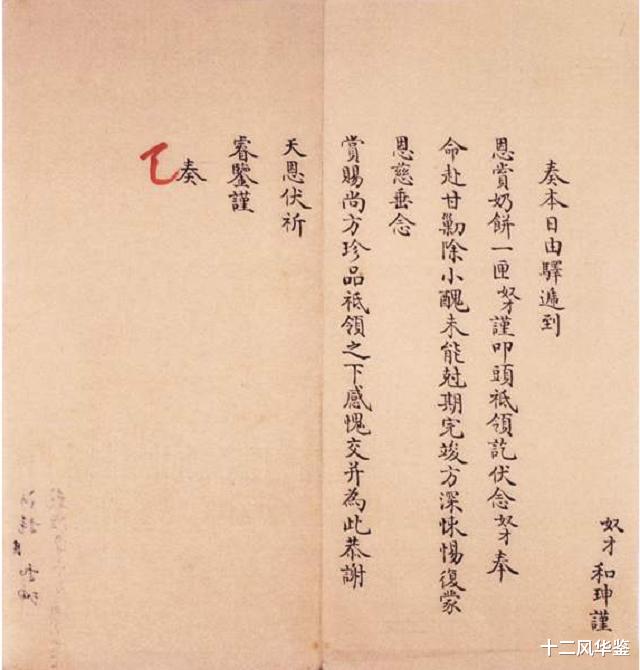 奴才和珅謹
奏本日由驛遞到
恩賞奶餅一匣奴才謹叩頭祗領訖伏念奴才奉
命赴甘勦除小醜未能尅期完竣方深悚惕復蒙
恩慈垂念
賞賜尚方珍品祗領之下感愧交并為此恭謝
天恩伏祈
睿鑒謹
奏
十二风华鉴